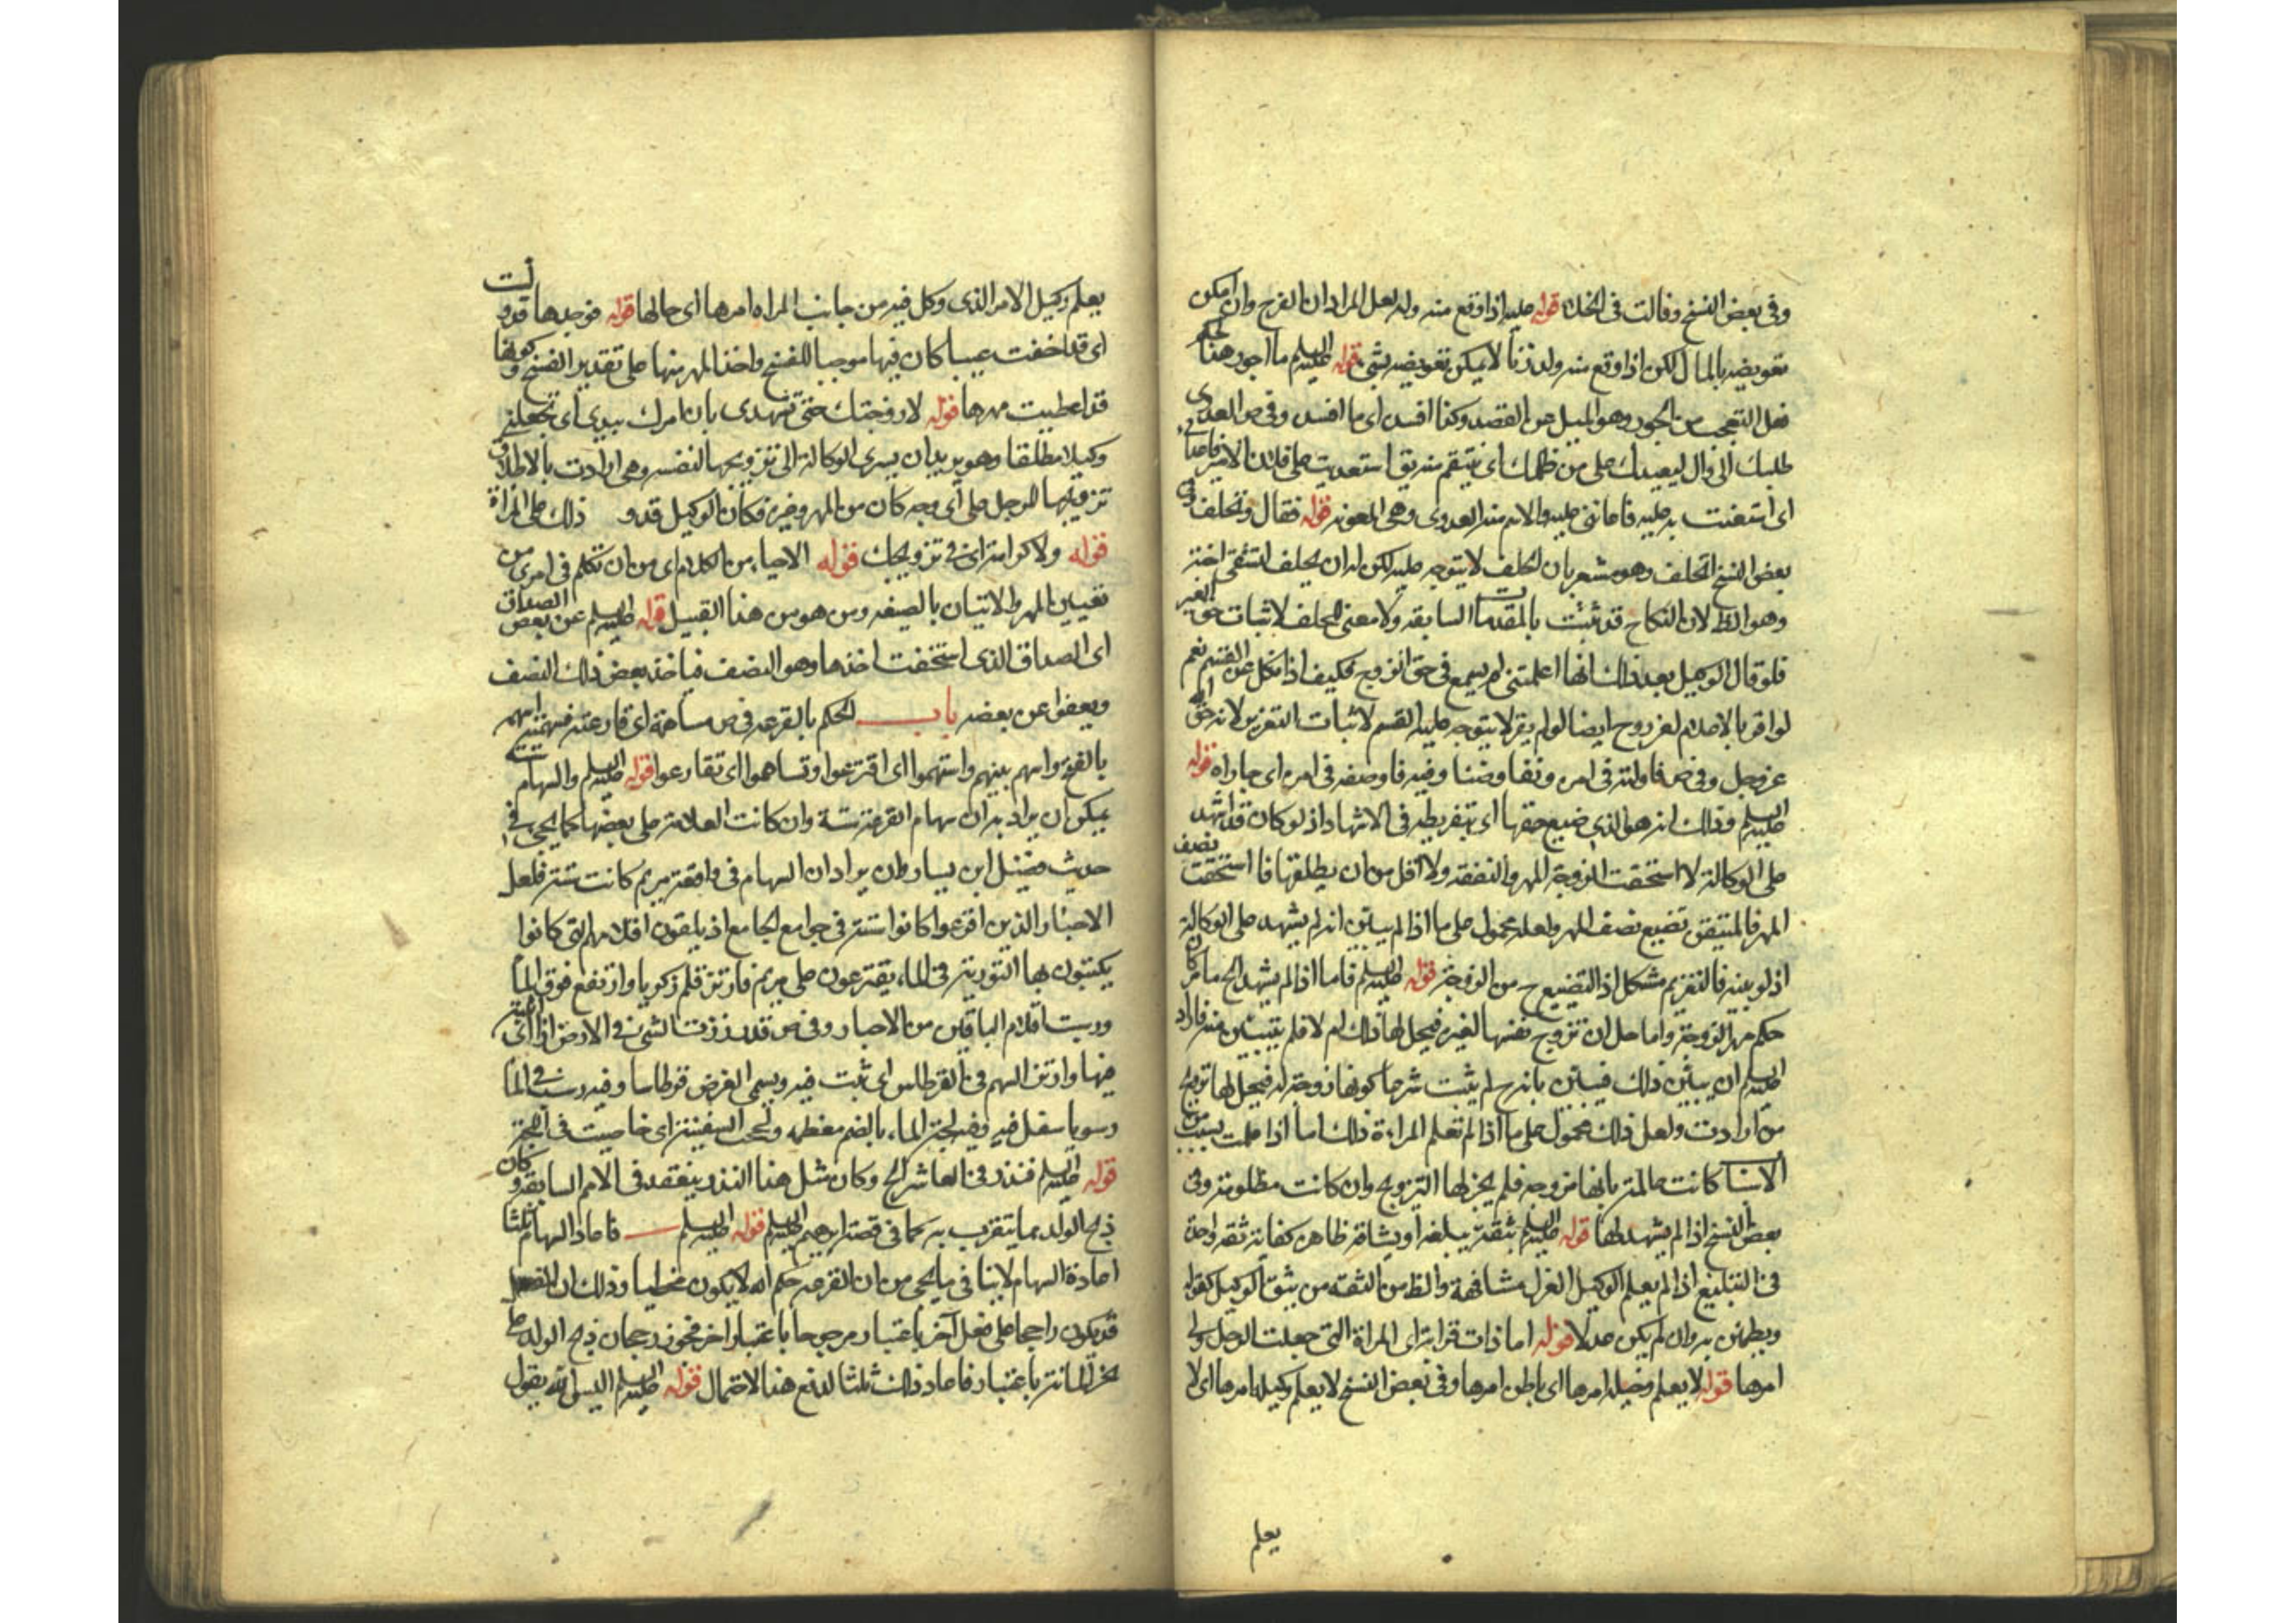 وفى بعض النسخ وقالت فى الخلاء قوله عليه اذا وقع منه ولد لعل المراد ان الفرج وان امكن
تعويضه بالمال لكن اذا وقع منه ولد زنا لا يمكن تعويضه بشئ قوله عليه السلم ما اجور هذا الحكم
فعل التعجب من الجور وهو الميل عن القصد وكذا افسد اى ما افسد وفى ص العدوى
طلبك الى وال ليعديك على من ظلمك اى ينتقم منه يق استعديت على فلان الامير فاعدانى
اى استعنت به عليه فاعاننى عليه والاسم منه العدوى وهى المعونه قوله فقال وتحلف وفى
بعض النسخ اتحلف وهو مشعر بان الحلف لا يتوجه عليه لكن له ان يحلف
وهو الظ لان النكاح قد ثبتت بالمقدمات السابقه ولا معنى للحلف لاثبات حق الغير
فلو قال الوكيل بعد ذلك انها اعلمتنى لم يسمع فى حق الزوج فكيف اذا نكل عن القسم نعم
لو اقر بالاعلام لغر روح ايضا لو لم يقر لا يتوجه عليه القسم لاثبات التعزير لانه حق الله
عز وجل وفى ص فاوضته فى امره وتفاوضنا وفيه فاوضه فى امره اى جاراه قوله
عليه السلم وذلك انه هو الذى ضيع حقها اى بتفريطه فى الاشهاد اذ لو كان قد اشهد
على الوكالة لا استحقت الزوجة المهر والنفقه ولا اقل من ان يطلقها فاستحقت نصف
المهر فالمتيقن تضييع نصف المهر ولعله محمول على ما اذا لم يبين انه لم يشهد على الوكالة
اذ لو بينه فالتغريم مشكل اذ التضييع ح من الزوجة قوله عليه السلم فاما اذا لم يشهد الخ ما مر كان
حكم مهر الزوجة واما حل ان تزوج نفسها لغيره فيحل لها ذلك ام لا فلم يتبين منه فاراد
عليه السلم ان يبين ذلك فبين بانه ح لم يثبت شرعا كونها زوجته له فيحل لها تزويج
من ارادت ولعل ذلك محمول على ما اذا لم تعلم المراءة ذلك اما اذا علمت بسبب من
الاسباب كانت عالمة بانها مزوجه فلم يجز لها التزويج وان كانت مظلومة وفى
بعض النسخ اذا لم يشهد لها قوله عليه السلم بثقة يبلغه او يشافه ظاهره كفاية ثقه واحدة
فى التبليغ اذا لم يعلم الوكيل العزل مشافهة والظ من الثقه من يثق الوكيل بقوله
ويطمئن به وان لم يكن عدلا قوله اما ذات قرابة اى المراة التى جعلت الرجل ولى
امرها قوله لا يعلم دخيله امرها اى باطن امرها وفى بعض النسخ لا يعلم وكيله امرها اى لا
يعلم
يعلم وكيل الامر الذى وكل فيه من جانب المراه امرها اى حالها قوله فوجدها قد دلست
اى قد اخفت عيبا كان فيها موجبا للفسخ واخذ المهر منها على تقدير الفسخ وكونها
قد اعطيت مهرها قوله لا زوجتك حتى تشهدى بان امرك بيدى اى تجعلنى
وكيلا مطلقا وهو يريد ان يسرى الوكالة الى تزويجها لنفسه وهى ارادت بالاطلاق
تزويجها للرجل على اى وجه كان من المهر وغيره فكان الوكيل قد و ذلك على المراة
قوله ولا كرامة اى فى تزويجك قوله الاحياء من الكلام اى من ان تكلم فى امرى من
تعيين المهر والاتيان بالصيغه ومن هو من هذا القبيل قوله عليه السلم عن بعض الصداق
اى الصداق الذى استحقت اخذها وهو النصف فياخذ بعض ذلك النصف
ويعفوا عن بعضه باب الحكم بالقرعه فى ص ساهمته اى قارعته فسهمته اسهمه
بالفتح واسهم بينهم واستهموا اى اقترعوا وتساهموا اى تقارعوا قوله عليه السلم والسهام ستة
يمكن ان يراد به ان سهام القرعة ستة وان كانت العلامة على بعضها كما يجئ فى
حديث فضيل ابن يسار وان يراد ان السهام فى واقعة مريم كانت ستة فلعل
الاحبار الذين اقرعوا كانوا ستة فى جوامع الجامع اذ يلقون اقلامهم التى كانوا
يكتبون بها التورية فى الماء يقترعون على مريم فارتز قلم زكريا وارتفع فوق الماء
ورسبت اقلام الباقين من الاحبار وفى ص قد رززت الشئ فى الارض اذا اثبته
فيها وارتز السهم فى القرطاس اى ثبت فيه ويسمى الغرض قرطاسا وفيه رسب فى الماء
رسوبا سفل فيه وفيه لجة الماء بالضم معظمه ولججت السفينة اى خاضت فى اللجة
قوله عليه السلم فنذر فى العاشر الخ وكان مثل هذا النذر ينعقد فى الامم السابقه وكان
ذبح الولد مما يتقرب به كما فى قصة ابرهيم عليه السلم قوله عليه السلم فاعاد السهام ثلثا
اعادة السهام لا ينافى ما يجئ من ان القرعه حكم الله لا يكون مخطيا وذلك ان الفعل
قد يكون راجحا على فعل آخر باعتبار مرجوحا باعتبار اخر فيجوز رجحان ذبح الولد على
نحر المائة باعتبار فاعاد ذلك ثلثا لدفع هذا الاحتمال قوله عليه السلم اليس الله يقول